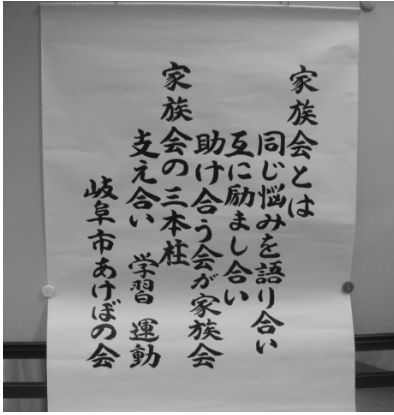 家族会とは
同じ悩みを語り合い
互に励まし合い
助け合う会が家族会
家族会の三本柱
支え合い 学習 運動
岐阜市あけぼの会